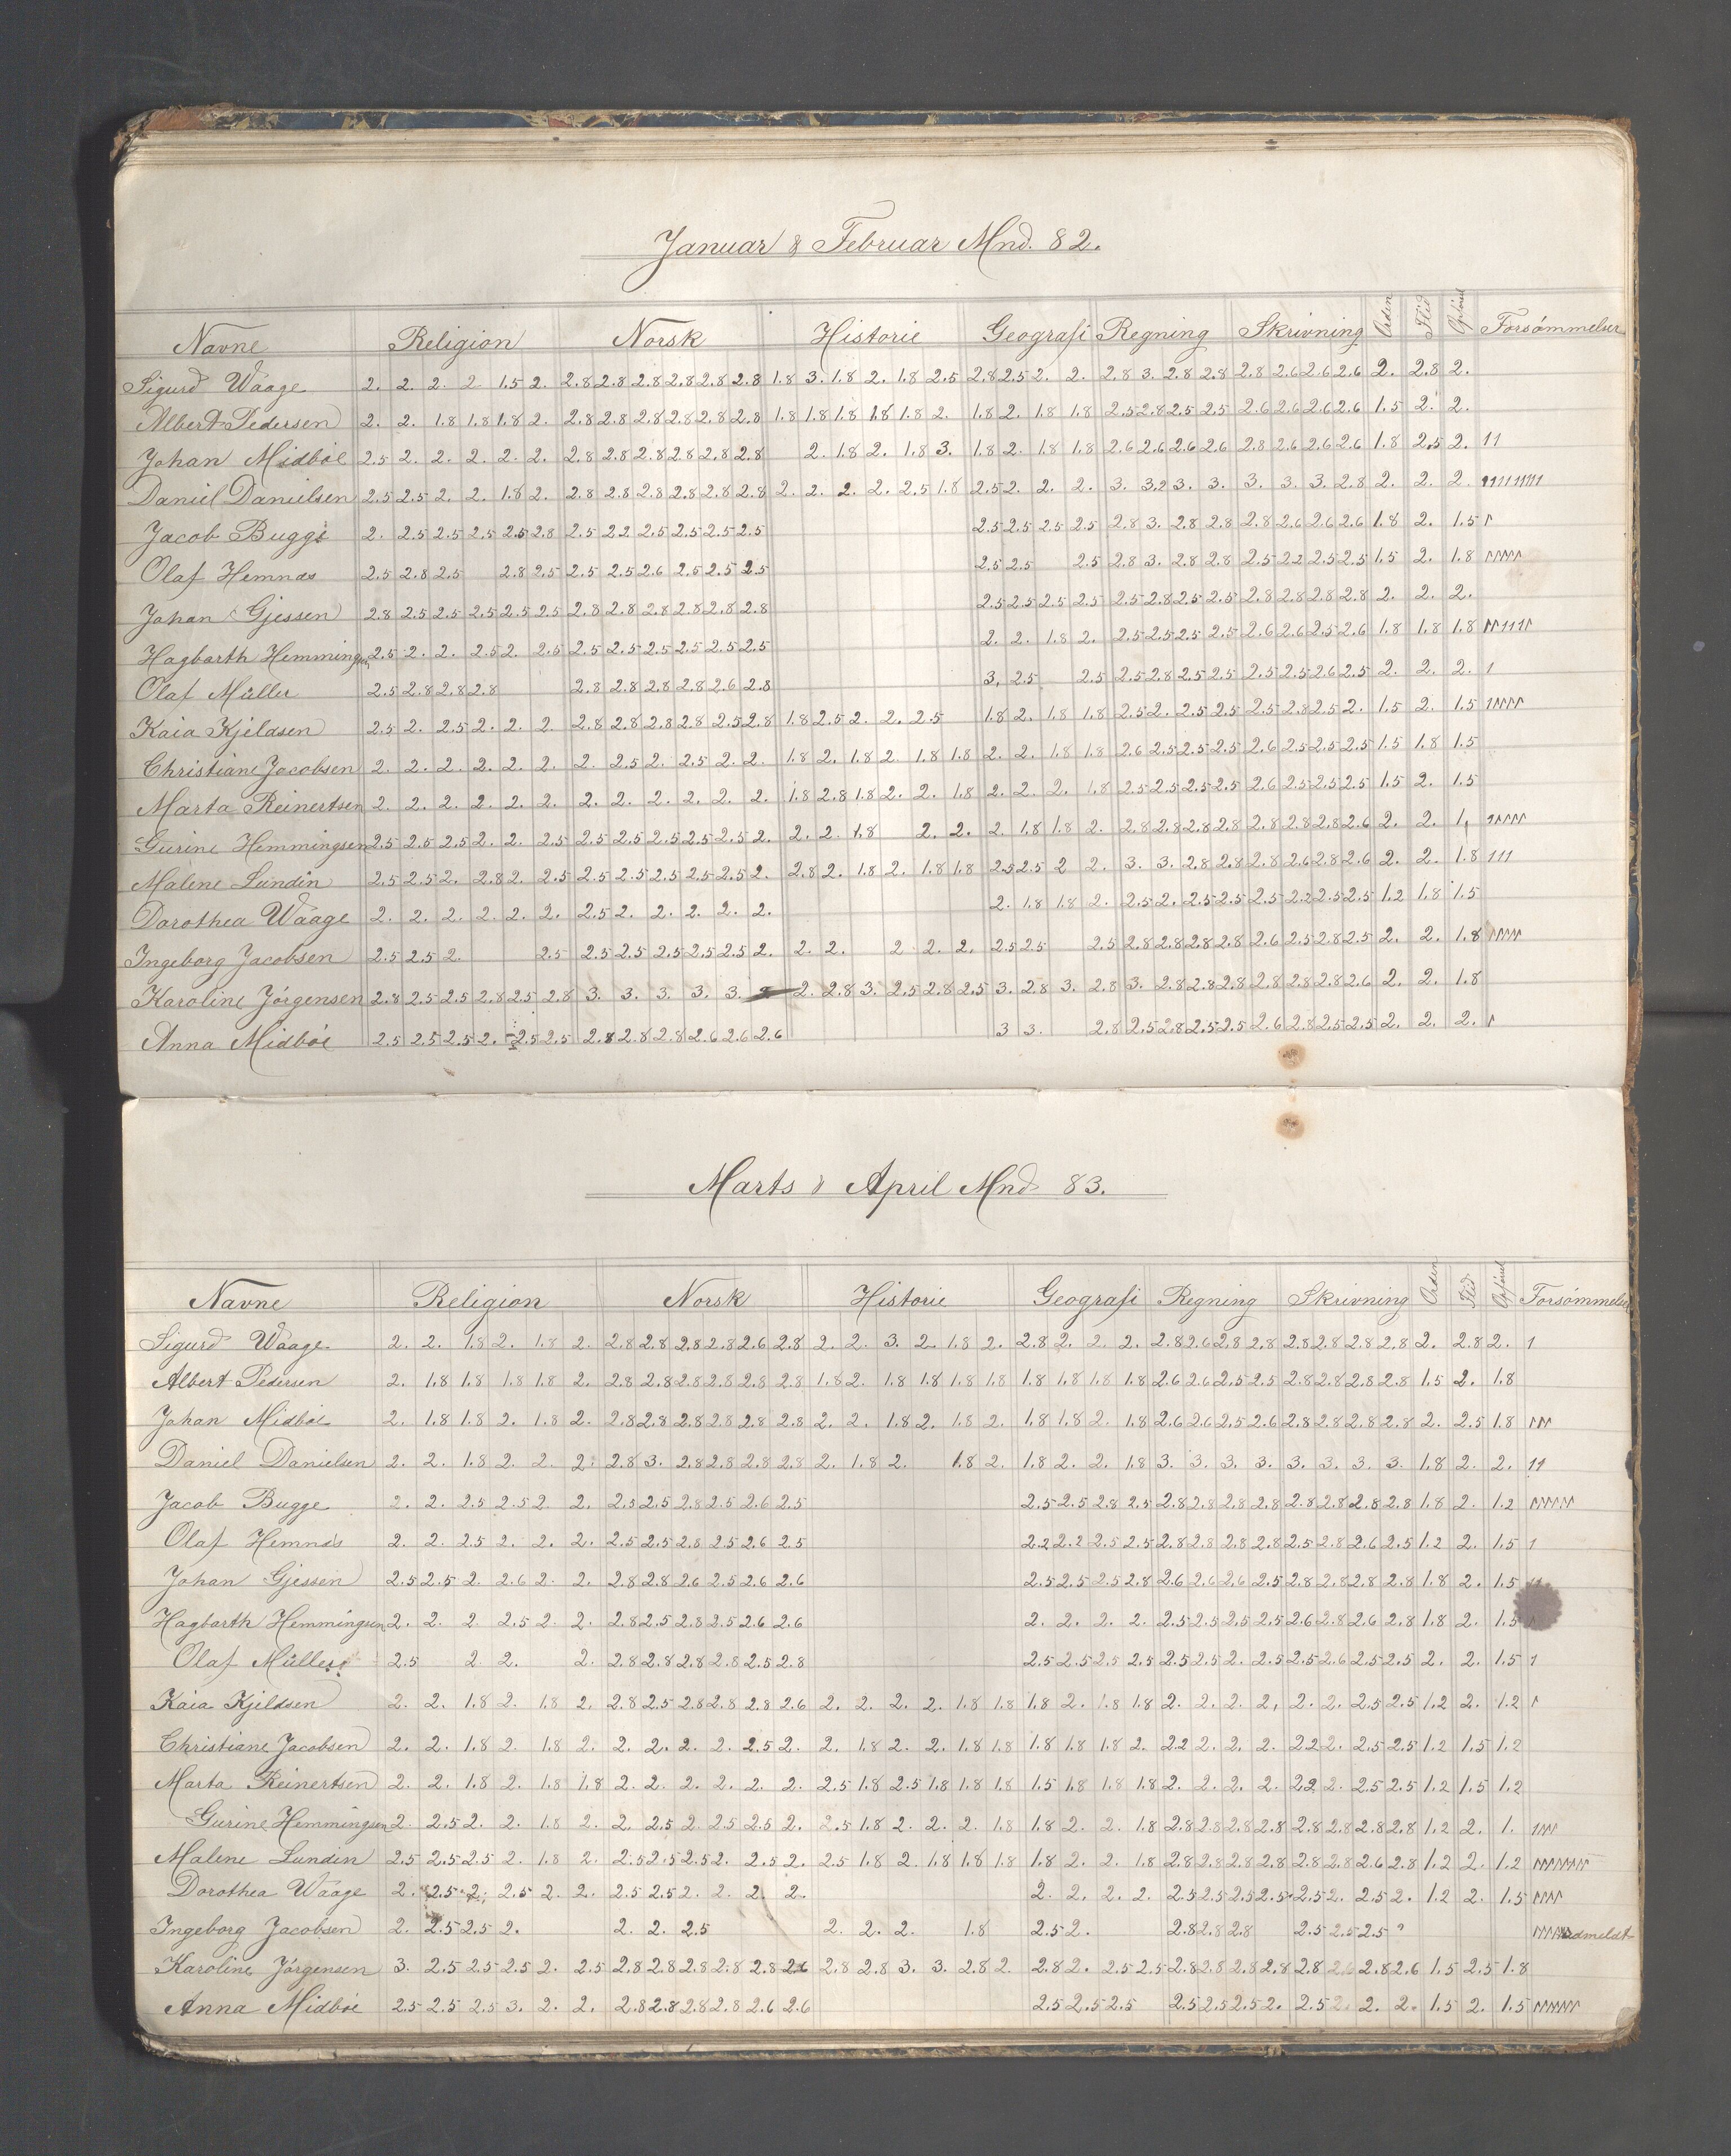 Januar & Februar Mnd. 82.
Navne Religion Norsk Historie Geografi Regning Skrivning Orden Flid Opførsel Forsömmelser
Sigurd Waage 2. 2. 2. 2 1.5 2. 2.8 2.8 2.8 2.8 2.8 2.8 1.8 3. 1.8 2. 1.8 2.5 2.8 2.5 2. 2. 2.8 3. 2.8 2.8 2.8 2.6 2.6 2.6 2. 2.8 2.
Albert Pedersen 2. 2. 1.8 1.8 1.8 2. 2.8 2.8 2.8 2.8 2.8 2.8 1.8 1.8 1.8 1.8 1.8 2. 1.8 2. 1.8 1.8 2.5 2.8 2.5 2.5 2.6 2.6 2.6 2.6 1.5 2. 2.
Johan Midböe 2.5 2. 2. 2. 2. 2. 2.8 2.8 2.8 2.8 2.8 2.8 2. 1.8 2. 1.8 3. 1.8 2. 1.8 1.8 2.6 2.6 2.6 2.6 2.8 2.6 2.6 2.6 1.8 2.5 2. 11
Daniel Danielsen 2.5 2.5 2. 2. 1.8 2. 2.8 2.8 2.8 2.8 2.8 2.8 2. 2. 2. 2. 2.5 1.8 2.5 2. 2. 2. 3. 3.2 3. 3. 3. 3. 3. 2.8 2. 2. 2.
Jacob Bugge 2. 2.5 2.5 2.5 2.5 2.8 2.5 2.2 2.5 2.5 2.5 2.5 2.5 2.5 2.5 2.5 2.8 3. 2.8 2.8 2.8 2.6 2.6 2.6 1.8 2. 1.5 1
Olaf Hemnæs 2.5 2.8 2.5 2.8 2.5 2.5 2.5 2.6 2.5 2.5 2.5 2.5 2.5 2.5 2.8 3. 2.8 2.8 2.5 2.2 2.5 2.5 1.5 2. 1.8 11111
Johan Gjessen 2.8 2.5 2.5 2.5 2.5 2.5 2.8 2.8 2.8 2.8 2.8 2.8 2.5 2.5 2.5 2.5 2.5 2.8 2.5 2.5 2.8 2.8 2.8 2.8 2. 2. 2.
Hagbarth Hemmingsen 2.5 2. 2. 2.5 2. 2.5 2.5 2.5 2.5 2.5 2.5 2.5 2. 2. 1.8 2. 2.5 2.5 2.5 2.5 2.6 2.6 2.5 2.6 1.8 1.8 1.8
Olaf Müller 2.5 2.8 2.8 2.8 2.8 2.8 2.8 2.8 2.6 2.8 3. 2.5 2.5 2.5 2.8 2.5 2.5 2.5 2.5 2.6 2.5 2. 2. 2. 1
Kaia Kjeldsen 2.5 2. 2.5 2. 2. 2. 2.8 2.8 2.8 2.8 2.5 2.8 1.8 2.5 2. 2. 2.5 1.8 2. 1.8 1.8 2.5 2. 2.5 2.5 2.5 2.8 2.5 2. 1.5 2. 1.5 11111
Christiane Jacobsen 2. 2. 2. 2. 2. 2. 2. 2.5 2. 2.5 2. 2. 1.8 2. 1.8 2. 1.8 1.8 2. 2. 1.8 1.8 2.6 2.5 2.5 2.5 2.6 2.5 2.5 2.5 1.5 1.8 1.5
Marta Reinertsen 2. 2. 2. 2. 2. 2. 2. 2. 2. 2. 2. 2. 1.8 2.8 1.8 2. 2. 1.8 2. 2. 2. 1.8 2.5 2.5 2.5 2.5 2.6 2.5 2.5 2.5 1.5 2. 1.5
Gurine Hemmingsen 2.5 2.5 2.5 2. 2. 2.5 2.5 2.5 2.5 2.5 2.5 2. 2. 2. 1.8 2. 2. 2. 1.8 1.8 2. 2.8 2.8 2.8 2.8 2.8 2.8 2.8 2.6 2. 2. 1. 11111
Malene Lundin 2.5 2.5 2. 2.8 2. 2.5 2.5 2.5 2.5 2.5 2.5 2. 2.8 2. 1.8 2. 1.8 1.8 2.5 2.5 2 2. 3. 3. 2.8 2.8 2.8 2.6 2.8 2.6 2. 2. 1.8 111
Dorothea Waage 2. 2. 2. 2. 2. 2. 2.5 2. 2. 2. 2. 2. 2. 1.8 1.8 2. 2.5 2. 2.5 2.5 2.5 2.2 2.5 2.5 1.2 1.8 1.5
Ingeborg Jacobsen 2.5 2.5 2. 2.5 2.5 2.5 2.5 2.5 2.5 2. 2. 2. 2 2. 2. 2.5 2.5 2.5 2.8 2.8 2.8 2.8 2.6 2.5 2.8 2.5 2. 2. 1.8 11111
Karoline Jörgensen 2.8 2.5 2.5 2.8 2.5 2.8 3. 3. 3. 3. 3. 2. 2.8 3. 2.5 2.8 2.5 3. 2.8 3. 2.8 3. 2.8 2.8 2.8 2.8 2.8 2.8 2.6 2. 2. 1.8
Anna Midböe 2.5 2.5 2.5 2. 2.5 2.5 2.8 2.8 2.8 2.6 2.6 2.6 3 3. 2.8 2.5 2.8 2.5 2.5 2.6 2.8 2.5 2.5 2. 2. 2. 1
Marts & April Mnd 83.
Navne Religion Norsk Historie Geografi Regning Skrivning Orden Flid Opførsel Forsömmelser
Sigurd Waage 2. 2. 1.8 2. 1.8 2. 2.8 2.8 2.8 2.8 2.6 2.8 2. 2. 3. 2. 1.8 2. 2.8 2. 2. 2. 2.8 2.6 2.8 2.8 2.8 2.8 2.8 2.8 2. 2.8 2. 1
Albert Pedersen 2. 1.8 1.8 1.8 1.8 2. 2.8 2.8 2.8 2.8 2.8 2.8 1.8 2. 1.8 1.8 1.8 1.8 1.8 1.8 1.8 1.8 2.6 2.6 2.5 2.5 2.8 2.8 2.8 2.8 1.5 2. 1.8
Johan Midböe 2. 1.8 1.8 2. 1.8 2. 2.8 2.8 2.8 2.8 2.8 2.8 2. 2. 1.8 2. 1.8 2. 1.8 1.8 2. 1.8 2.6 2.6 2.5 2.6 2.8 2.8 2.8 2.8 2. 2.5 1.8 111
Daniel Danielsen 2. 2. 1.8 2. 2. 2. 2.8 3. 2.8 2.8 2.8 2.8 2. 1.8 2. 1.8 2. 1.8 2. 2. 1.8 3. 3. 3. 3. 3. 3. 3. 3. 1.8 2. 2. 11
Jacob Bugge 2. 2. 2.5 2.5 2. 2. 2.5 2.5 2.8 2.5 2.6 2.5 2.5 2.5 2.8 2.5 2.8 2.8 2.8 2.8 2.8 2.8 2.8 2.8 1.8 2. 1.2
Olaf Hemnæs 2. 2. 2.5 2. 2. 2. 2.5 2.5 2.8 2.5 2.6 2.5 2.2 2.2 2.5 2.5 2.8 2.8 2.8 2.8 2.5 2.8 2.6 2.5 1.2 2. 1.5 1
Johan Gjessen 2.5 2.5 2. 2.6 2. 2. 2.8 2.8 2.6 2.5 2.6 2.6 2.5 2.5 2.5 2.8 2.6 2.6 2.6 2.5 2.8 2.8 2.8 2.8 1.8 2. 1.5
Hagbarth Hemmingsen 2. 2. 2. 2.5 2. 2. 2.8 2.5 2.8 2.5 2.6 2.6 2. 2. 2. 2. 2.5 2.5 2.5 2.5 2.6 2.8 2.6 2.8 1.8 2. 1.5
Olaf Müller 2.5 2. 2. 2. 2.8 2.8 2.8 2.8 2.5 2.8 2.5 2.5 2.5 2.5 2.5 2.5 2. 2.5 2.5 2.6 2.5 2.5 2. 2. 1.5 1
Kaia Kjeldsen 2. 2. 1.8 2. 1.8 2. 2.8 2.5 2.8 2.8 2.8 2.6 2. 2. 2. 2. 1.8 1.8 1.8 2. 1.8 1.8 2. 2. 2. 2. 2. 2. 2.5 2.5 1.2 2. 1.2 1
Christiane Jacobsen 2. 2. 1.8 2. 1.8 2. 2. 2. 2. 2. 2.5 2. 2. 1.8 2. 2. 1.8 1.8 1.8 1.8 1.8 2. 2.2 2. 2. 2. 2.2 2. 2.5 2.5 1.2 1.5 1.2
Marta Reinertsen 2. 2. 1.8 2. 1.8 1.8 2. 2. 2. 2. 2. 2. 2.5 1.8 2.5 1.8 1.8 1.8 1.5 1.8 1.8 1.8 2. 2. 2. 2. 2.2 2. 2.5 2.5 1.2 1.5 1.2
Gurine Hemmingsen 2. 2.5 2. 2. 1.8 2. 2. 2.5 2. 2.5 2.5 2. 2.5 1.8 2. 2. 2. 1.8 1.8 2. 2. 1.8 2.8 2.8 2.8 2.8 2.8 2.8 2.8 2.8 1.2 2. 1. 1111
Malene Lundin 2.5 2.5 2.5 2. 1.8 2. 2.5 2.5 2.5 2. 2.5 2. 2.5 1.8 2. 1.8 1.8 1.8 1.8 2. 2. 1.8 2.8 2.8 2.8 2.8 2.8 2.8 2.6 2.8 1.2 2. 1.2
Dorothea Waage 2. 2.5 2. 2.5 2. 2. 2.5 2.5 2. 2. 2. 2. 2. 2. 2. 2. 2.5 2.5 2.5 2.5 2.5 2. 2.5 2. 1.2 2. 1.5 1111
Ingeborg Jacobsen 2. 2.5 2.5 2. 2. 2. 2.5 2. 2. 2. 1.8 2.5 2. 2.8 2.8 2.8 2.5 2.5 2.5 ? udmeldt
Karoline Jörgensen 3. 2.5 2.5 2.5 2. 2.5 2.8 2.8 2.8 2.8 2.8 2.6 2.8 2.8 3. 3. 2.8 2. 2.8 2. 2.5 2.5 2.8 2.8 2.8 2.8 2.8 2.6 2.8 2.6 1.5 2.5 1.8
Anna Midböe 2.5 2.5 2.5 3. 2. 2. 2.8 2.8 2.8 2.8 2.6 2.6 2.5 2.5 2.5 2.5 2.5 2.5 2. 2.5 2. 2. 2. 1.5 2. 1.5